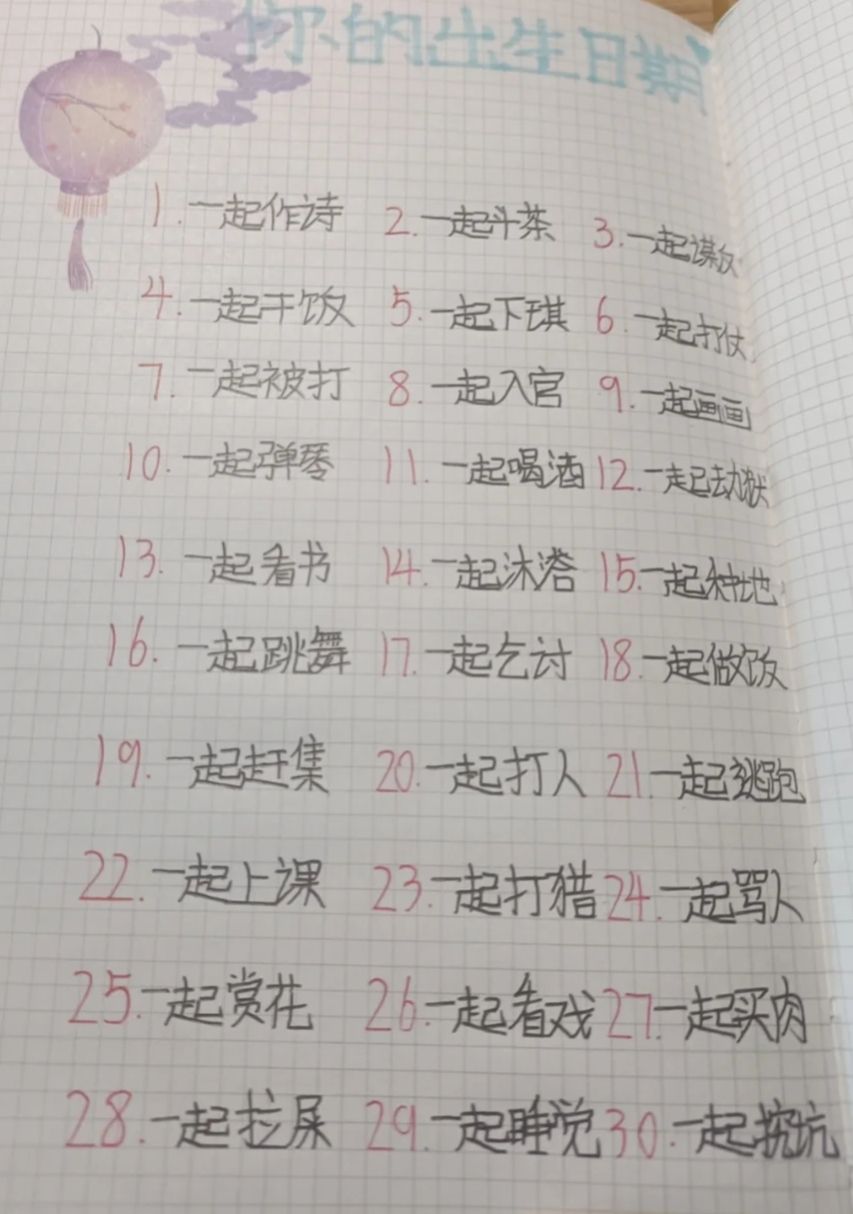 你的出生日期
1.一起作诗 2.一起斗茶 3.一起谋反
4.一起干饭 5.一起下琪 6.一起打仗
7.一起被打 8.一起入宫 9.一起画画
10.一起弹琴 11.一起喝酒 12.一起劫狱
13.一起看书 14.一起沐浴 15.一起种地
16.一起跳舞 17.一起乞讨 18.一起做饭
19.一起赶集 20.一起打人 21.一起逃跑
22.一起上课 23.一起打猎 24.一起骂人
25.一起赏花 26.一起看戏 27.一起买肉
28.一起拉屎 29.一起睡觉 30.一起挖坑